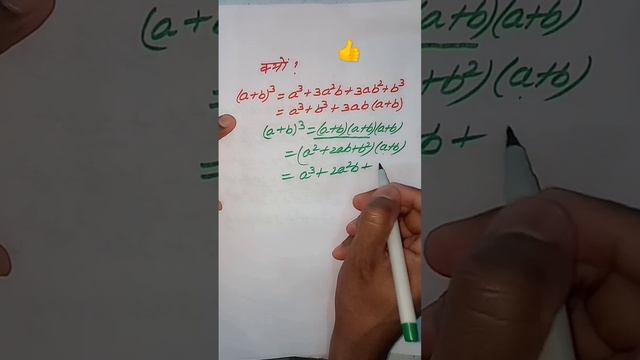 क्यों !
(a+b)³ = a³+3a²b+3ab²+b³
= a³+b³+3ab(a+b)
(a+b)³ = (a+b)(a+b)(a+b)
= (a²+2ab+b²)(a+b)
= a³+2a²b+